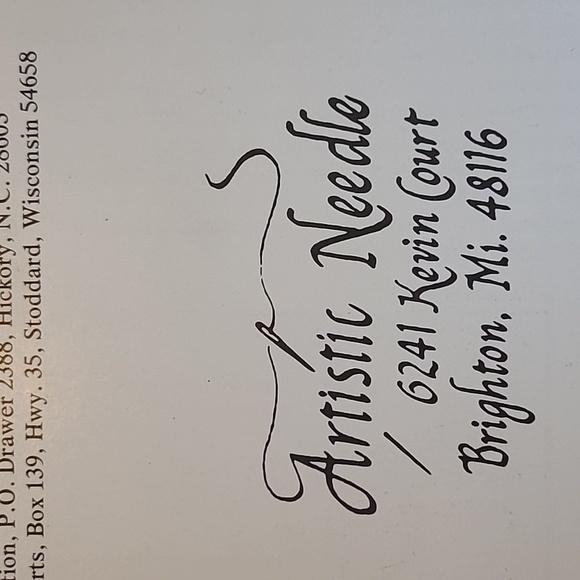 tion, P.O. Drawer 2388, Hickory, N.C. 28603
rts, Box 139, Hwy. 35, Stoddard, Wisconsin 54658
Artistic Needle
6241 Kevin Court
Brighton, Mi. 48116